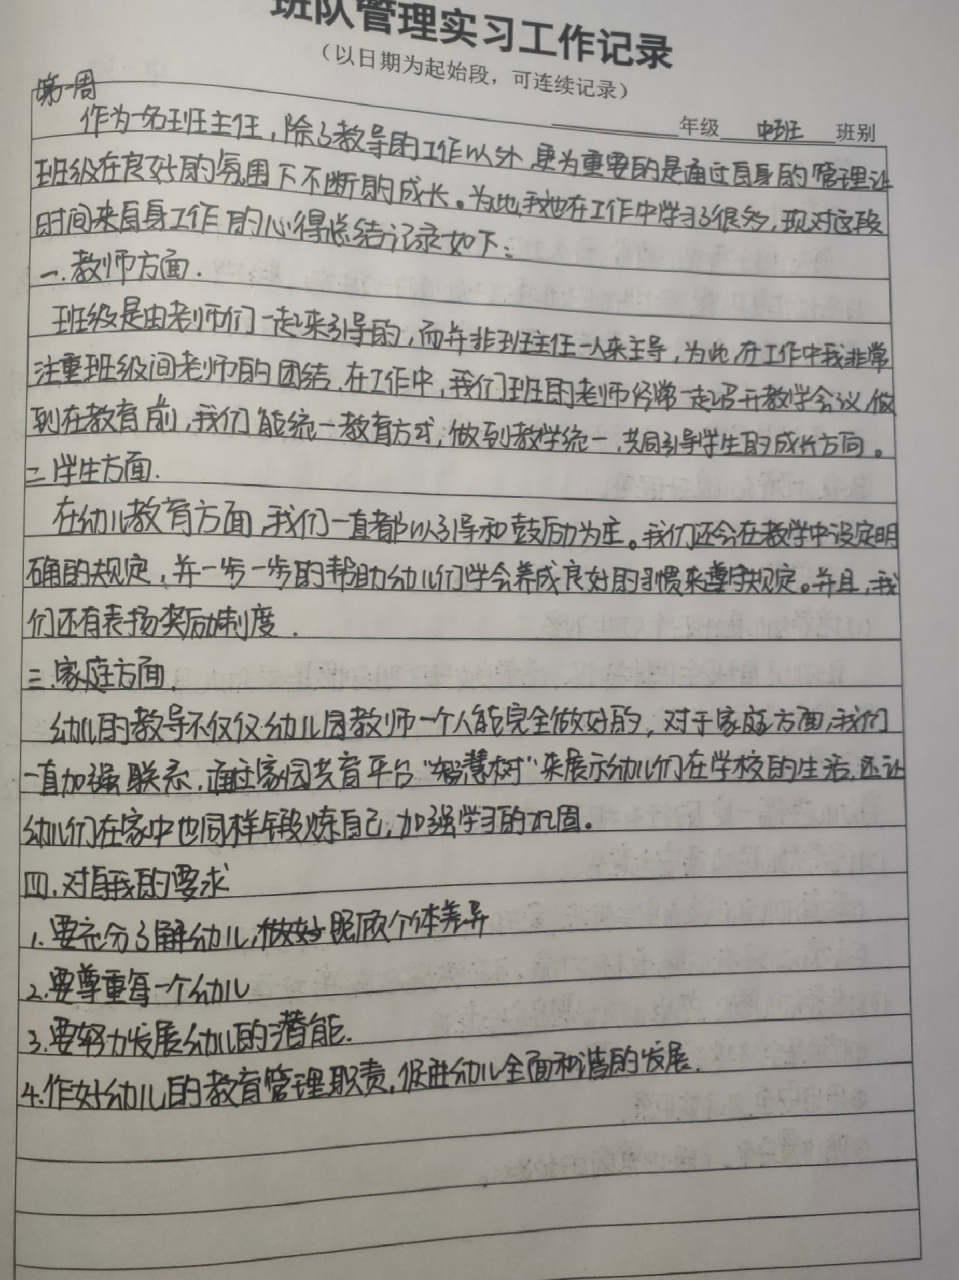 班队管理实习工作记录
（以日期为起始段，可连续记录）
第一周
年级 中班 班别
作为一名班主任，除了教导的工作以外，更为重要的是通过自身的管理让
班级在良好的氛围下不断的成长。为此，我也在工作中学习了很多，现对这段
时间来自身工作的心得总结记录如下：
一．教师方面．
班级是由老师们一起来引导的，而并非班主任一人来主导，为此，在工作中我非常
注重班级间老师的团结．在工作中，我们班的老师经常一起召开教学会议，做
到在教育前，我们能统一教育方式，做到教学统一，共同引导学生的成长方向。
二．学生方面．
在幼儿教育方面，我们一直都以引导和鼓励为主。我们还会在教学中设定明
确的规定，并一步一步的帮助幼儿们学会养成良好的习惯来遵守规定。并且，我
们还有表扬奖励制度．
三．家庭方面．
幼儿的教导不仅仅幼儿园教师一个人能完全做好的，对于家庭方面，我们
一直加强联系，通过家园共育平台“智慧树”来展示幼儿们在学校的生活，还让
幼儿们在家中也同样锻炼自己，加强学习的巩固。
四．对自我的要求
1．要充分了解幼儿，做好照顾个体差异
2．要尊重每一个幼儿
3．要努力发展幼儿的潜能．
4．作好幼儿的教育管理职责，促进幼儿全面和谐的发展．